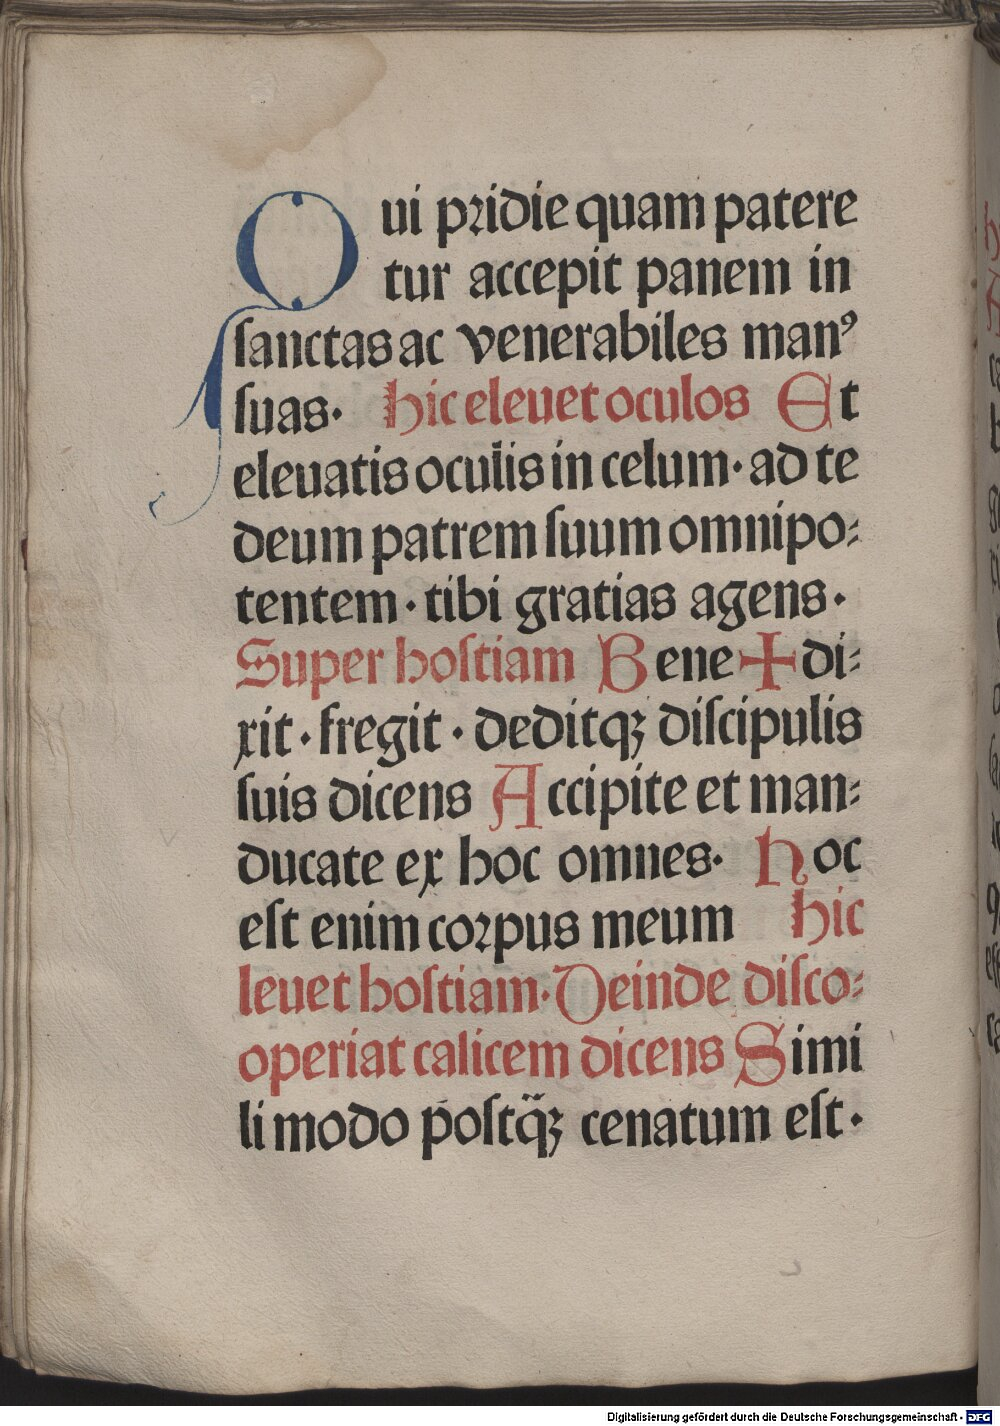 Qui pridie quam patere
tur accepit panem in
ſanctas ac venerabiles manꝰ
ſuas · hic eleuet oculos Et
eleuatis oculis in celum · ad te
deum patrem ſuum omnipo⸗
tentem · tibi gratias agens ·
Super hoſtiam Bene ✚ di⸗
xit · fregit · deditqꝫ diſcipulis
ſuis dicens Accipite et man⸗
ducate ex hoc omnes · Hoc
eſt enim corpus meum hic
leuet hoſtiam · Deinde diſco⸗
operiat calicem dicens Simi
li modo poſtq̈ꝫ cenatum eſt ·
Digitalisierung gefördert durch die Deutsche Forschungsgemeinschaft - DFG